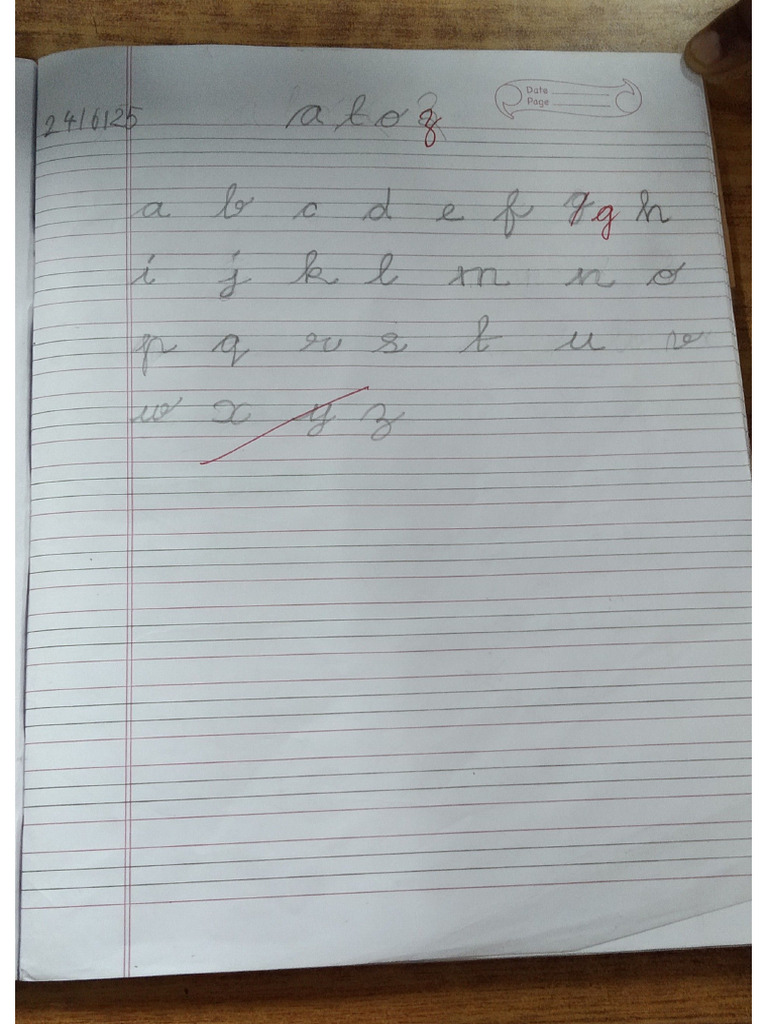 Date
Page
24/6/25
a to z
a b c d e f g g h
i j k l m n o
p q r s t u v
w x y z